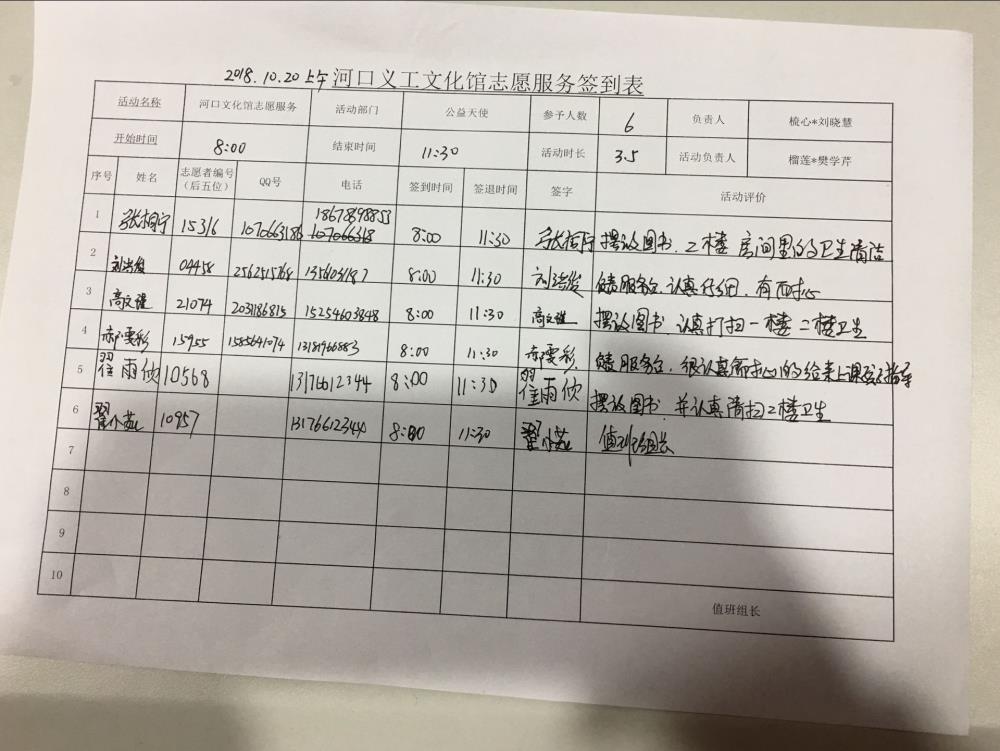 2018.10.20上午 河口义工文化馆志愿服务签到表
活动名称 河口文化馆志愿服务 活动部门 公益天使 参予人数 6 负责人 梳心*刘晓慧
开始时间 8:00 结束时间 11:30 活动时长 3.5 活动负责人 榴莲*樊学芹
序号 姓名 志愿者编号（后五位） QQ号 电话 签到时间 签退时间 签字 活动评价
1 15316 1070663186 8:00 11:30 摆放图书．2楼房间里的卫生清洁
2 04458 2562515768 8:00 11:30 服务台．认真仔细．有耐心
3 高文瑾 21074 2031186815 15254603848 8:00 11:30 高文瑾 摆放图书．认真打扫一楼二楼卫生
4 郝雯彩 15955 1585641074 13181966883 8:00 11:30 郝雯彩 服务台．很认真耐心的给来上课
5 翟雨欣 10568 13176612344 8:00 11:30 翟雨欣 摆放图书．并认真清扫2楼卫生
6 翟 10957 13176612344 8:00 11:30 翟 值班组长
7
8
9
10 值班组长